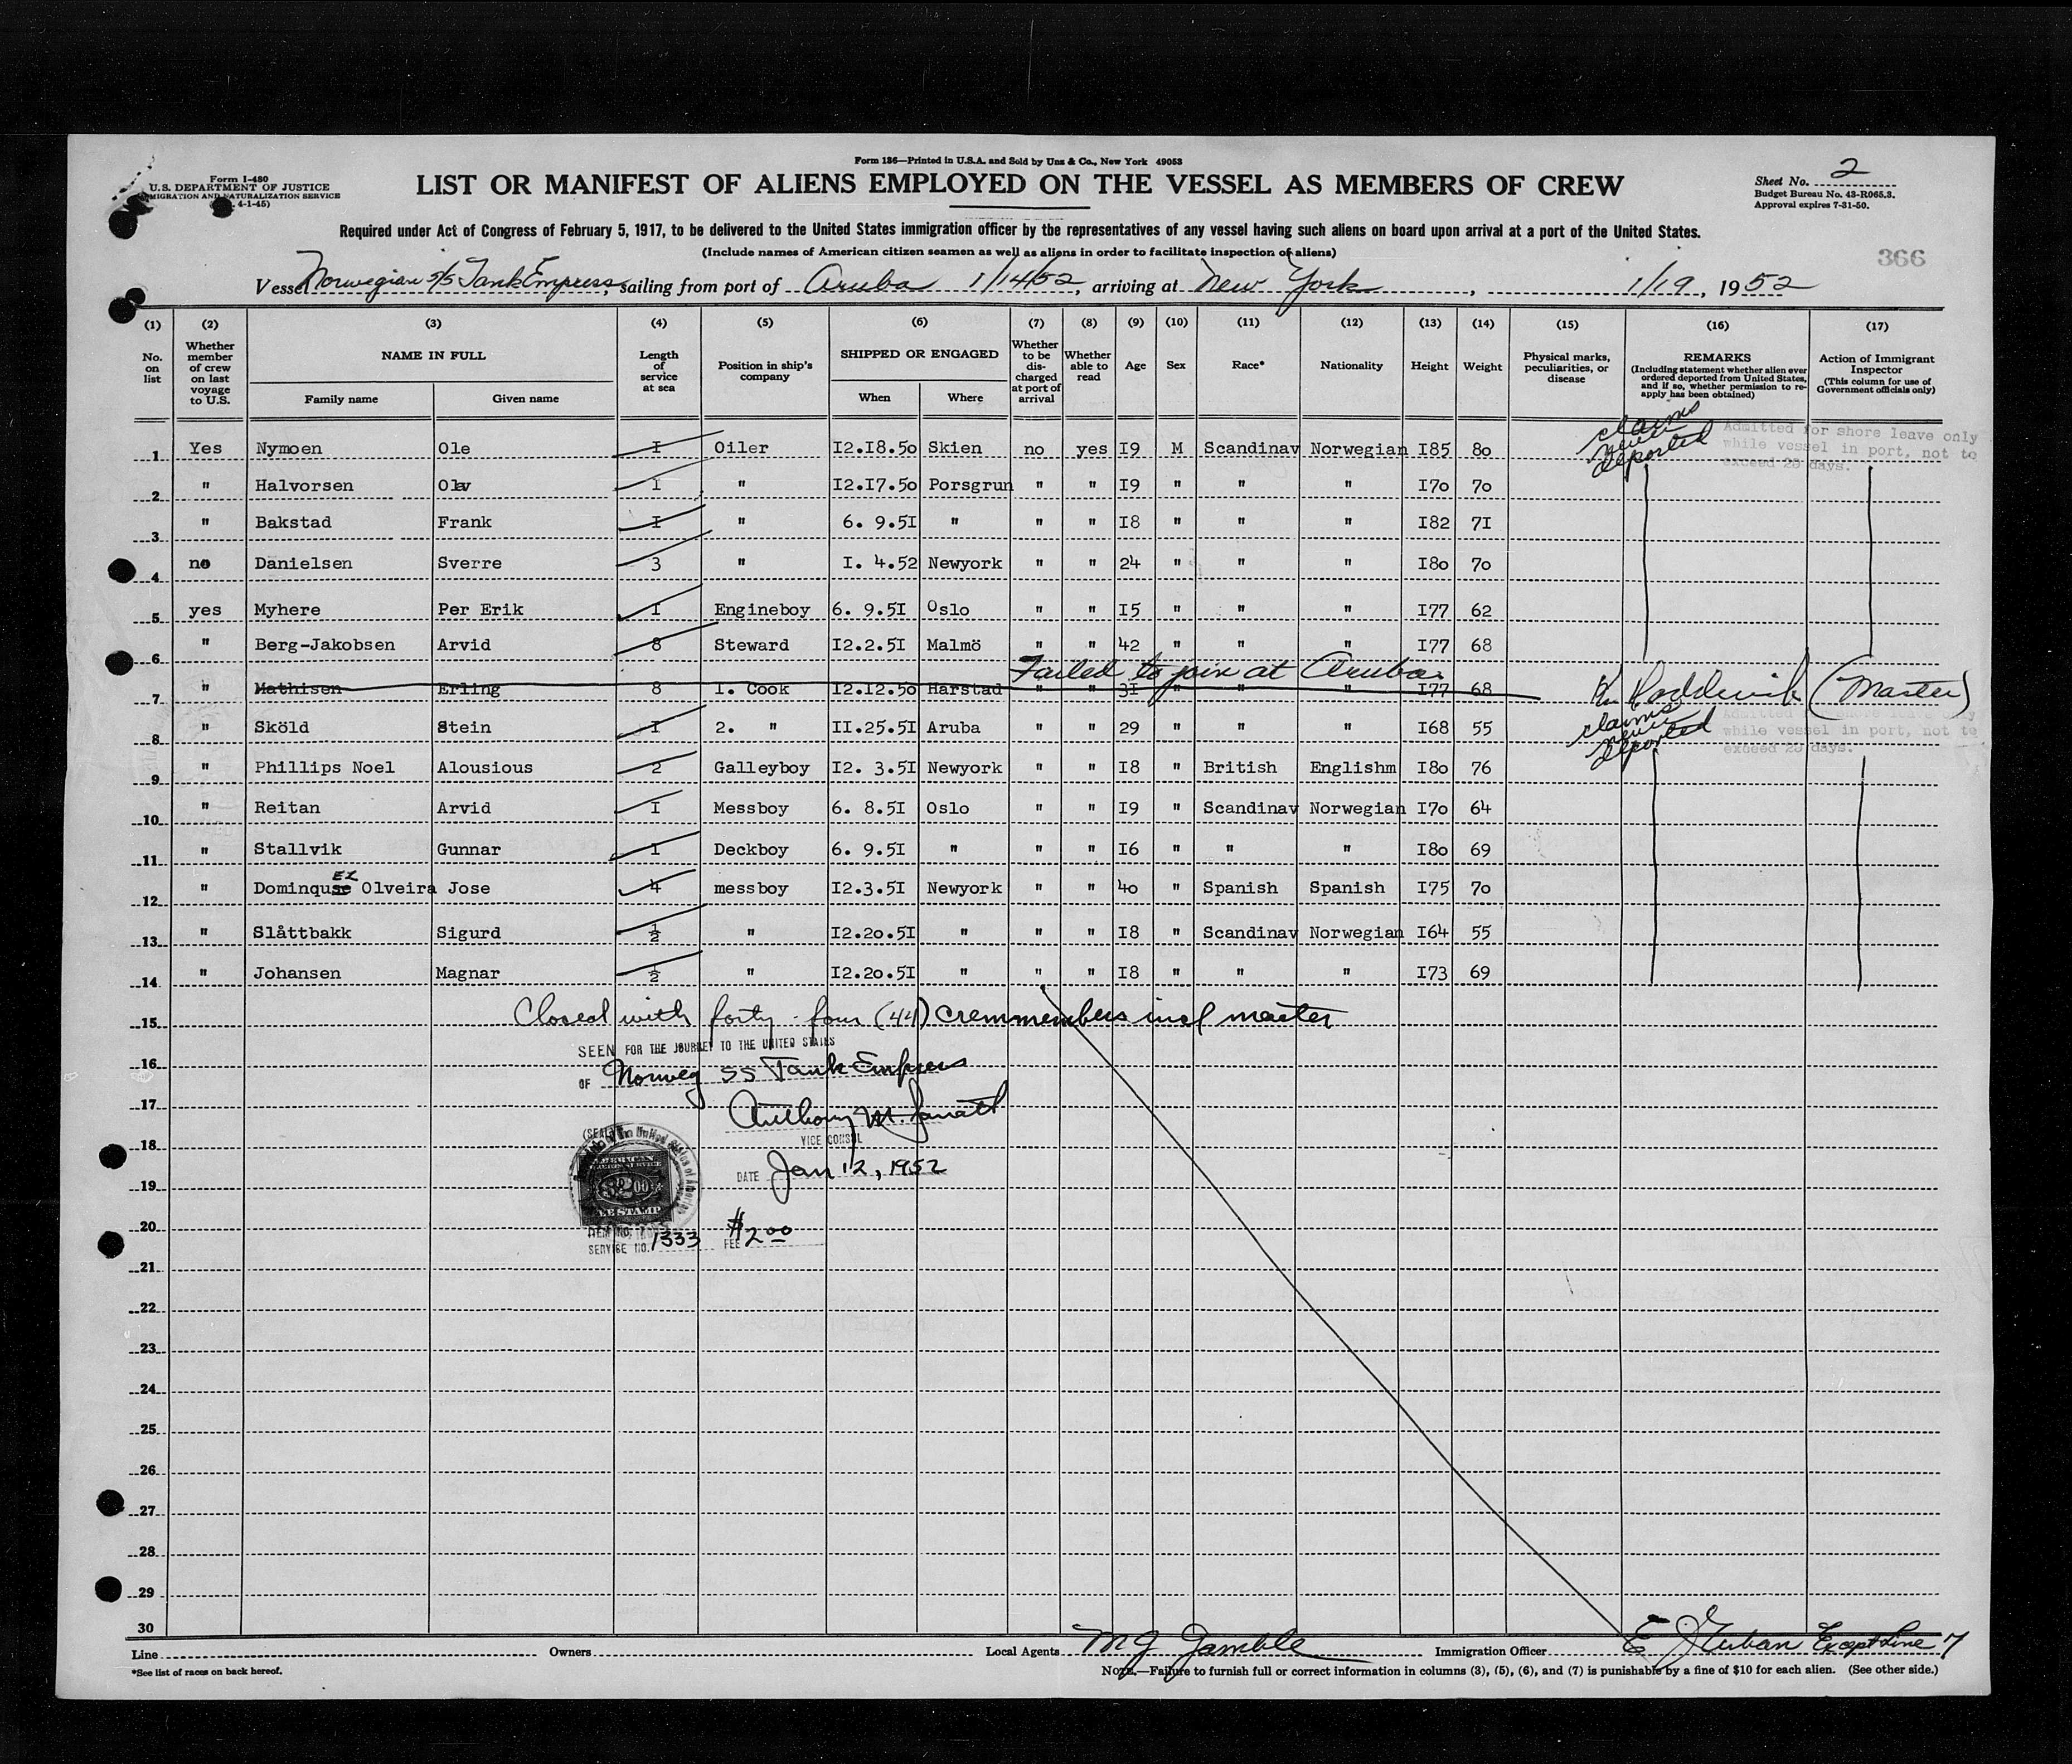 Form 136—Printed in U.S.A. and Sold by Unz & Co., New York 49053
Form I-480
U.S. DEPARTMENT OF JUSTICE
IMMIGRATION AND NATURALIZATION SERVICE
4-1-45)
LIST OR MANIFEST OF ALIENS EMPLOYED ON THE VESSEL AS MEMBERS OF CREW
Sheet No. 2
Budget Bureau No. 43-R065.3.
Approval expires 7-31-50.
Required under Act of Congress of February 5, 1917, to be delivered to the United States immigration officer by the representatives of any vessel having such aliens on board upon arrival at a port of the United States.
(Include names of American citizen seamen as well as aliens in order to facilitate inspection of aliens)
366
Vessel Norwegian s/s Tank Empress, sailing from port of Aruba 1/14/52, arriving at New York, 1/19, 1952
(1) (2) (3) (4) (5) (6) (7) (8) (9) (10) (11) (12) (13) (14) (15) (16) (17)
No. on list
Whether member of crew on last voyage to U.S.
NAME IN FULL
Family name
Given name
Length of service at sea
Position in ship's company
SHIPPED OR ENGAGED
When
Where
Whether to be discharged at port of arrival
Whether able to read
Age
Sex
Race*
Nationality
Height
Weight
Physical marks, peculiarities, or disease
REMARKS
(Including statement whether alien ever ordered deported from United States, and if so, whether permission to re-apply has been obtained)
Action of Immigrant Inspector
(This column for use of Government officials only)
1 Yes Nymoen Ole I Oiler I2.I8.50 Skien no yes I9 M Scandinav Norwegian I85 80 claims never deported Admitted for shore leave only while vessel in port, not to exceed 29 days.
2 " Halvorsen Olav I " I2.I7.50 Porsgrun " " I9 " " " I70 70
3 " Bakstad Frank I " 6. 9.5I " " " I8 " " " I82 7I
4 no Danielsen Sverre 3 " I. 4.52 Newyork " " 24 " " " I80 70
5 yes Myhere Per Erik I Engineboy 6. 9.5I Oslo " " I5 " " " I77 62
6 " Berg-Jakobsen Arvid 8 Steward I2.2.5I Malmö " " 42 " " " I77 68
Failed to join at Aruba
7 " Mathisen Erling 8 I. Cook I2.I2.50 Harstad " " 3I " " " I77 68 (Master)
8 " Sköld Stein I 2. " II.25.5I Aruba " " 29 " " " I68 55 claims never deported Admitted for shore leave only while vessel in port, not to exceed 29 days.
9 " Phillips Noel Alousious 2 Galleyboy I2. 3.5I Newyork " " I8 " British Englishm I80 76
10 " Reitan Arvid I Messboy 6. 8.5I Oslo " " I9 " Scandinav Norwegian I70 64
11 " Stallvik Gunnar I Deckboy 6. 9.5I " " " I6 " " " I80 69
EZ
12 " Dominquse Olveira Jose 4 messboy I2.3.5I Newyork " " 40 " Spanish Spanish I75 70
13 " Slåttbakk Sigurd ½ " I2.20.5I " " " I8 " Scandinav Norwegian I64 55
14 " Johansen Magnar ½ " I2.20.5I " " " I8 " " " I73 69
15 Closed with forty-four (44) crewmembers incl master
SEEN FOR THE JOURNEY TO THE UNITED STATES
16
OF Norweg SS Tank Empress
17 Anthony M.
18 (SEAL) VICE CONSUL
AMERICAN
$2.00
FEE STAMP
DATE Jan 12, 1952
19
20
ITEM NO.
SERVICE NO. 1333
FEE $2.00
21
22
23
24
25
26
27
28
29
30
Line Owners Local Agents M J Gamble Immigration Officer Except Line 7
*See list of races on back hereof.
NOTE.—Failure to furnish full or correct information in columns (3), (5), (6), and (7) is punishable by a fine of $10 for each alien. (See other side.)